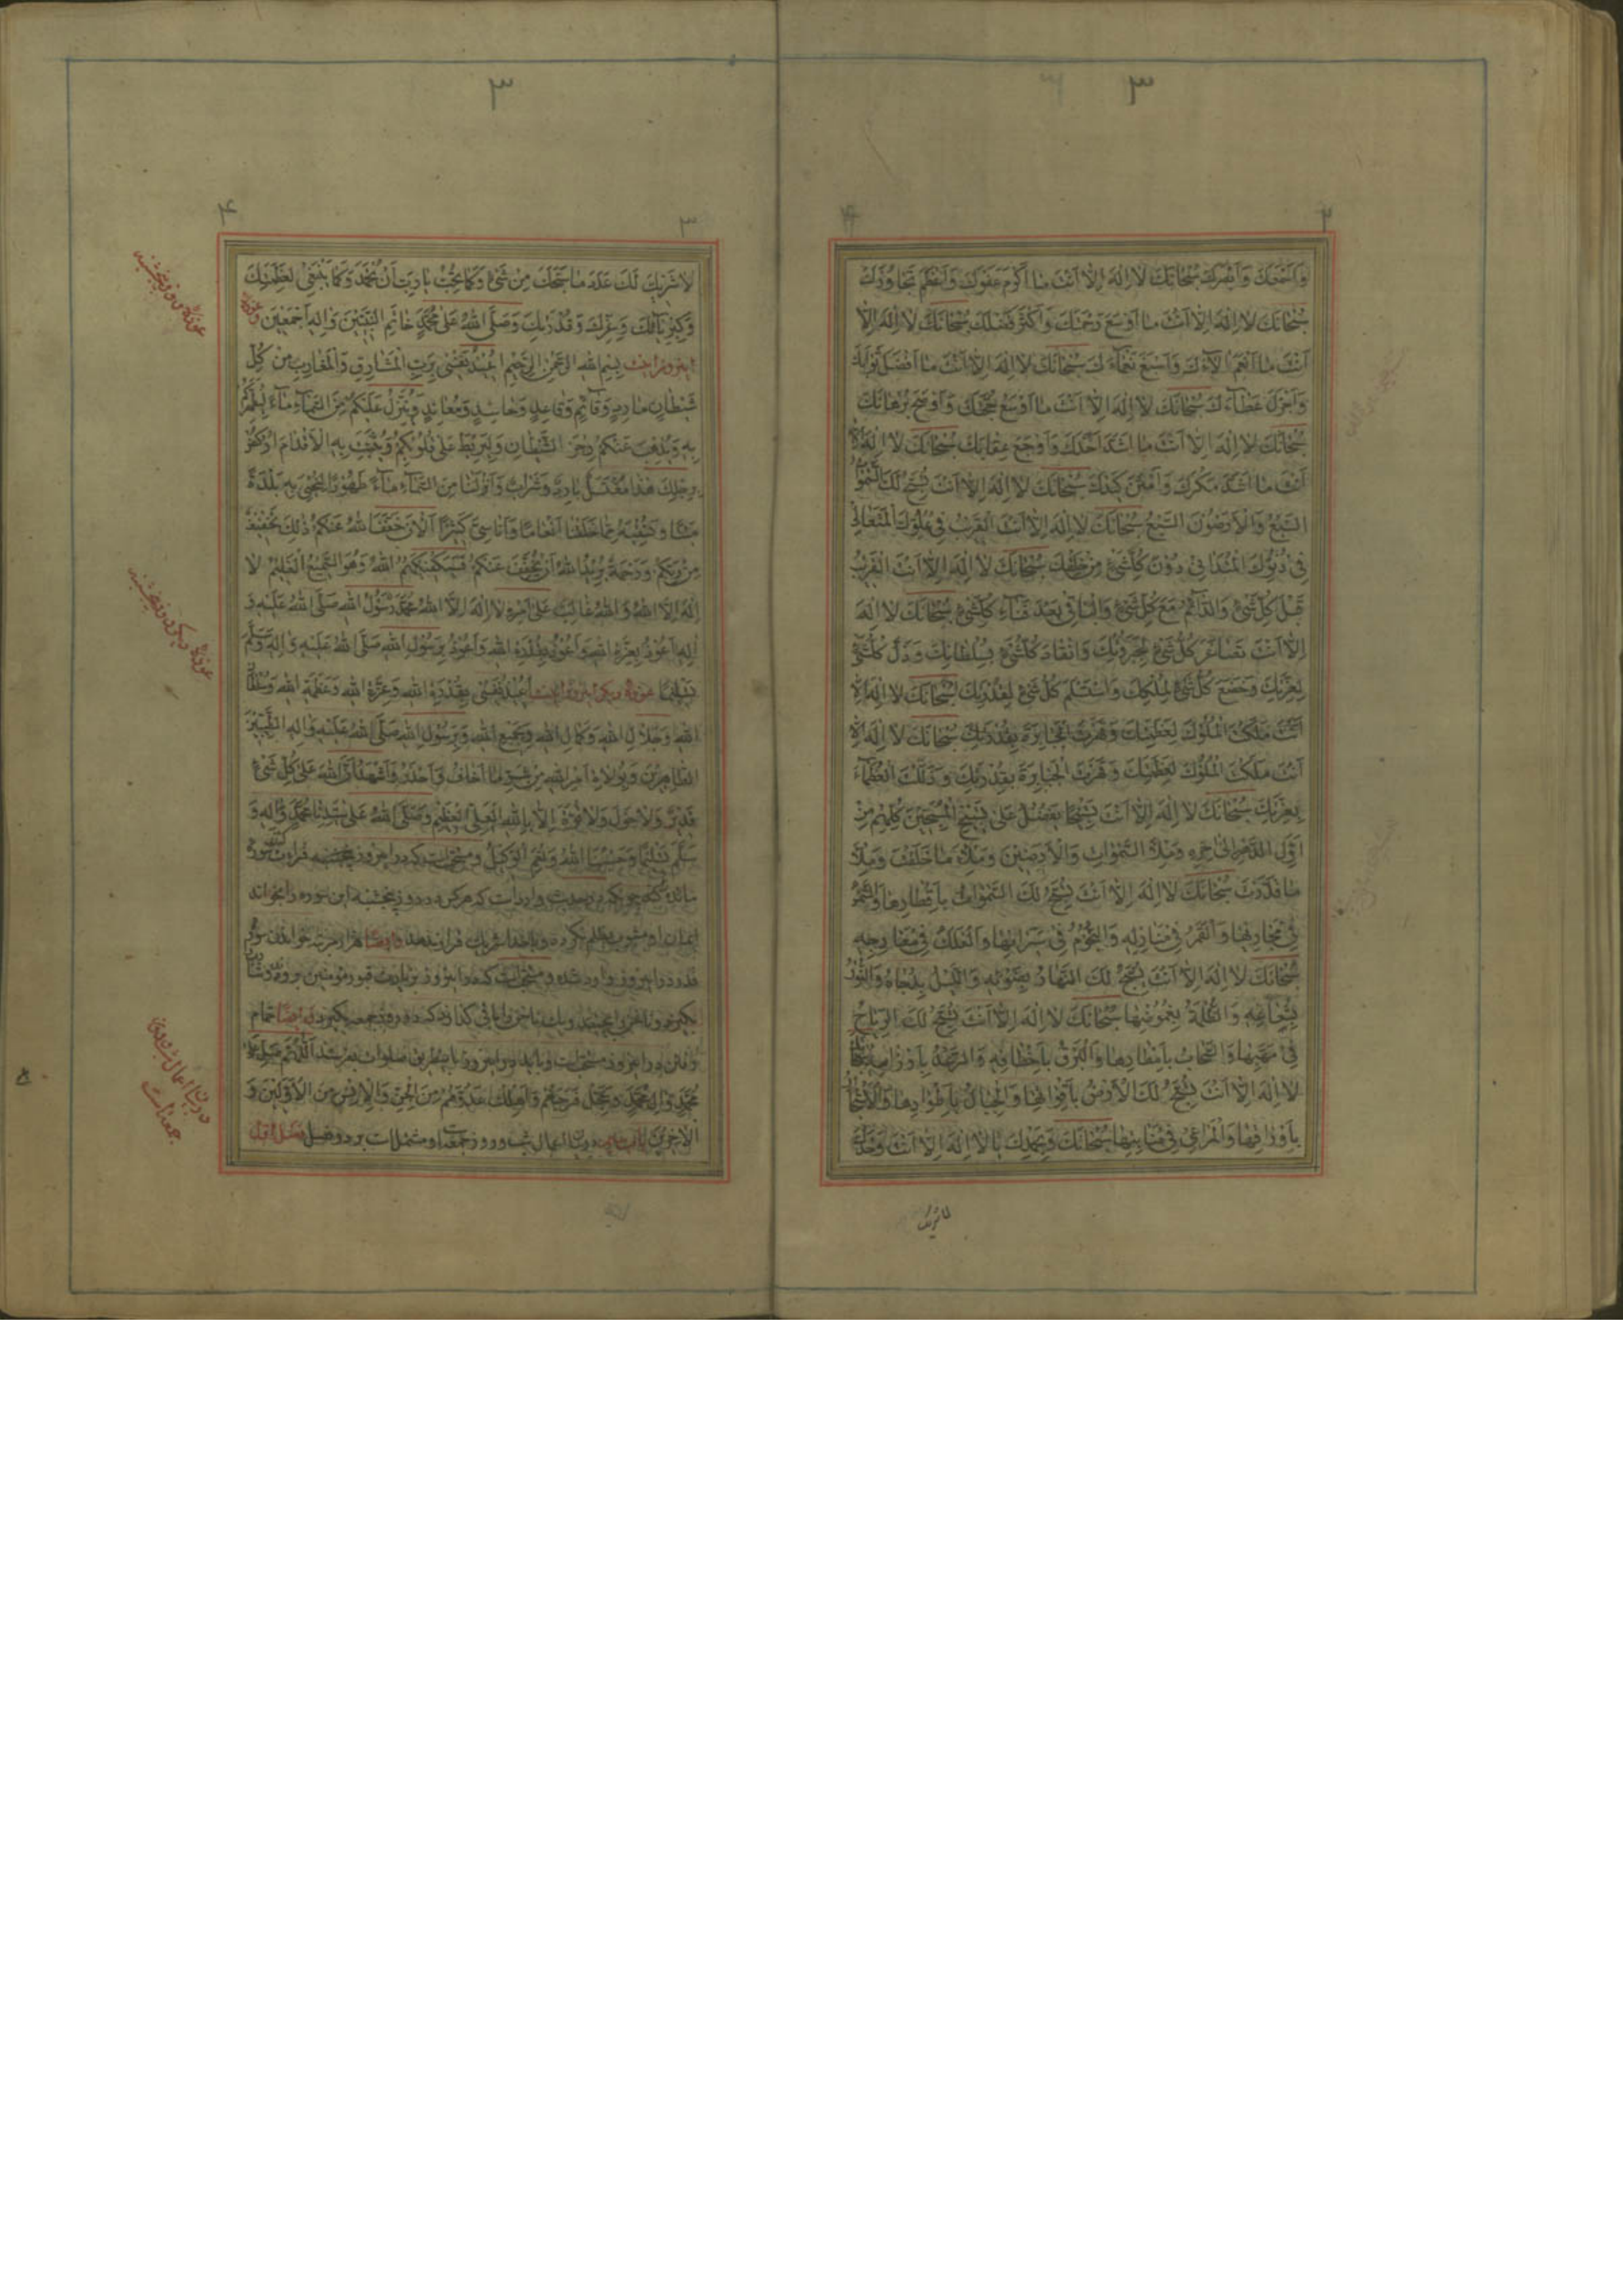 ٣
٢
وَأَسْمَعَكَ وَأَبْصَرَكَ سُبْحَانَكَ لَا إِلٰهَ إِلَّا أَنْتَ مَا أَكْرَمَ عَفْوَكَ وَأَعْظَمَ تَجَاوُزَكَ
سُبْحَانَكَ لَا إِلٰهَ إِلَّا أَنْتَ مَا أَوْسَعَ رَحْمَتَكَ وَأَكْثَرَ فَضْلَكَ سُبْحَانَكَ لَا إِلٰهَ إِلَّا
أَنْتَ مَا أَنْعَمَ آلَاءَكَ وَأَسْبَغَ نَعْمَاءَكَ سُبْحَانَكَ لَا إِلٰهَ إِلَّا أَنْتَ مَا أَفْضَلَ ثَوَابَكَ
وَأَجْزَلَ عَطَاءَكَ سُبْحَانَكَ لَا إِلٰهَ إِلَّا أَنْتَ مَا أَوْسَعَ حُجَّتَكَ وَأَوْضَحَ بُرْهَانَكَ
سُبْحَانَكَ لَا إِلٰهَ إِلَّا أَنْتَ مَا أَشَدَّ أَخْذَكَ وَأَوْجَعَ عِقَابَكَ سُبْحَانَكَ لَا إِلٰهَ إِلَّا
أَنْتَ مَا أَشَدَّ مَكْرَكَ وَأَمْتَنَ كَيْدَكَ سُبْحَانَكَ لَا إِلٰهَ إِلَّا أَنْتَ تُسَبِّحُ لَكَ السَّمٰوَاتُ
السَّبْعُ وَالْأَرَضُونَ السَّبْعُ سُبْحَانَكَ لَا إِلٰهَ إِلَّا أَنْتَ الْقَرِيبُ فِي عُلُوِّكَ الْمُتَعَالِي
فِي دُنُوِّكَ الْمُتَدَانِي دُونَ كُلِّ شَيْءٍ مِنْ خَلْقِكَ سُبْحَانَكَ لَا إِلٰهَ إِلَّا أَنْتَ الْقَرِيبُ
قَبْلَ كُلِّ شَيْءٍ وَالدَّائِمُ مَعَ كُلِّ شَيْءٍ وَالْبَاقِي بَعْدَ فَنَاءِ كُلِّ شَيْءٍ سُبْحَانَكَ لَا إِلٰهَ
إِلَّا أَنْتَ تَصَاغَرَ كُلُّ شَيْءٍ لِجَبَرُوتِكَ وَانْقَادَ كُلُّ شَيْءٍ لِسُلْطَانِكَ وَذَلَّ كُلُّ شَيْءٍ
لِعِزَّتِكَ وَخَضَعَ كُلُّ شَيْءٍ لِمُلْكِكَ وَاسْتَسْلَمَ كُلُّ شَيْءٍ لِقُدْرَتِكَ سُبْحَانَكَ لَا إِلٰهَ إِلَّا
أَنْتَ مَلَكْتَ الْمُلُوكَ لِعَظَمَتِكَ وَقَهَرْتَ الْجَبَابِرَةَ بِقُدْرَتِكَ سُبْحَانَكَ لَا إِلٰهَ إِلَّا
أَنْتَ مَلَكْتَ الْمُلُوكَ لِعَظَمَتِكَ وَقَهَرْتَ الْجَبَابِرَةَ بِقُدْرَتِكَ وَذَلَّلْتَ الْعُظَمَاءَ
بِعِزَّتِكَ سُبْحَانَكَ لَا إِلٰهَ إِلَّا أَنْتَ تَسْبِيحًا يَفْضُلُ عَلَى تَسْبِيحِ الْمُسَبِّحِينَ كُلِّهِمْ مِنْ
أَوَّلِ الدَّهْرِ إِلَى آخِرِهِ وَمِلْأَ السَّمٰوَاتِ وَالْأَرَضِينَ وَمِلْأَ مَا خَلَقْتَ وَمِلْأَ
مَا قَدَّرْتَ سُبْحَانَكَ لَا إِلٰهَ إِلَّا أَنْتَ تُسَبِّحُ لَكَ السَّمٰوَاتُ بِأَقْطَارِهَا وَالشَّمْسُ
فِي مَجَارِيهَا وَالْقَمَرُ فِي مَنَازِلِهِ وَالنُّجُومُ فِي سَيَرَانِهَا وَالْفَلَكُ فِي مَعَارِجِهِ
سُبْحَانَكَ لَا إِلٰهَ إِلَّا أَنْتَ يُسَبِّحُ لَكَ النَّهَارُ بِضَوْئِهِ وَاللَّيْلُ بِدُجَاهُ وَالنُّورُ
بِشُعَاعِهِ وَالظُّلْمَةُ بِغُمُوضِهَا سُبْحَانَكَ لَا إِلٰهَ إِلَّا أَنْتَ تُسَبِّحُ لَكَ الرِّيَاحُ
فِي مَهَبِّهَا وَالسَّحَابُ بِأَمْطَارِهَا وَالْبَرْقُ بِأَخْطَافِهِ وَالرَّعْدُ بِأَرْزَامِهِ سُبْحَانَكَ
لَا إِلٰهَ إِلَّا أَنْتَ تُسَبِّحُ لَكَ الْأَرْضُ بِأَقْوَاتِهَا وَالْجِبَالُ بِأَطْوَادِهَا وَالْأَشْجَارُ
بِأَوْرَاقِهَا وَالْمَرَاعِي فِي مَنَابِتِهَا سُبْحَانَكَ وَبِحَمْدِكَ لَا إِلٰهَ إِلَّا أَنْتَ وَحْدَكَ
لا شریک
٣
٤
٣
لَا شَرِيكَ لَكَ عَدَدَ مَا سَبَّحَكَ مِنْ شَيْءٍ وَكَمَا تُحِبُّ يَا رَبِّ أَنْ تُحْمَدَ وَكَمَا يَنْبَغِي لِعَظَمَتِكَ
وَكِبْرِيَائِكَ وَعِزِّكَ وَقُدْرَتِكَ وَصَلَّى اللهُ عَلَى مُحَمَّدٍ خَاتَمِ النَّبِيِّينَ وَآلِهِ أَجْمَعِينَ
اینروز اینست بِسْمِ اللهِ الرَّحْمٰنِ الرَّحِيمِ أُعِيذُ نَفْسِي بِرَبِّ الْمَشَارِقِ وَالْمَغَارِبِ مِنْ كُلِّ
شَيْطَانٍ مَارِدٍ وَقَائِمٍ وَقَاعِدٍ وَحَاسِدٍ وَمُعَانِدٍ وَيُنَزِّلُ عَلَيْكُمْ مِنَ السَّمَاءِ مَاءً لِيُطَهِّرَكُمْ
بِهِ وَيُذْهِبَ عَنْكُمْ رِجْزَ الشَّيْطَانِ وَلِيَرْبِطَ عَلَى قُلُوبِكُمْ وَيُثَبِّتَ بِهِ الْأَقْدَامَ ارْكُضْ
بِرِجْلِكَ هٰذَا مُغْتَسَلٌ بَارِدٌ وَشَرَابٌ وَأَنْزَلْنَا مِنَ السَّمَاءِ مَاءً طَهُورًا لِنُحْيِيَ بِهِ بَلْدَةً
مَيْتًا وَنُسْقِيَهُ مِمَّا خَلَقْنَا أَنْعَامًا وَأَنَاسِيَّ كَثِيرًا الْآنَ خَفَّفَ اللهُ عَنْكُمْ ذٰلِكَ تَخْفِيفٌ
مِنْ رَبِّكُمْ وَرَحْمَةٌ يُرِيدُ اللهُ أَنْ يُخَفِّفَ عَنْكُمْ فَسَيَكْفِيكَهُمُ اللهُ وَهُوَ السَّمِيعُ الْعَلِيمُ لَا
إِلٰهَ إِلَّا اللهُ وَاللهُ غَالِبٌ عَلَى أَمْرِهِ لَا إِلٰهَ إِلَّا اللهُ مُحَمَّدٌ رَسُولُ اللهِ صَلَّى اللهُ عَلَيْهِ وَ
آلِهِ أَعُوذُ بِعِزَّةِ اللهِ وَأَعُوذُ بِقُدْرَةِ اللهِ وَأَعُوذُ بِرَسُولِ اللهِ صَلَّى اللهُ عَلَيْهِ وَآلِهِ وَسَلَّمَ
تَسْلِيمًا عوذه دیگر اینروز اینست أُعِيذُ نَفْسِي بِقُدْرَةِ اللهِ وَعِزَّةِ اللهِ وَعَظَمَةِ اللهِ وَسُلْطَانِ
اللهِ وَجَلَالِ اللهِ وَكَمَالِ اللهِ وَبِجَمِيعِ اللهِ وَبِرَسُولِ اللهِ صَلَّى اللهُ عَلَيْهِ وَآلِهِ الطَّيِّبِينَ
الطَّاهِرِينَ وَبِوُلَاةِ أَمْرِ اللهِ مِنْ شَرِّ مَا أَخَافُ وَأَحْذَرُ وَأَشْهَدُ أَنَّ اللهَ عَلَى كُلِّ شَيْءٍ
قَدِيرٌ وَلَا حَوْلَ وَلَا قُوَّةَ إِلَّا بِاللهِ الْعَلِيِّ الْعَظِيمِ وَصَلَّى اللهُ عَلَى سَيِّدِنَا مُحَمَّدٍ وَآلِهِ وَ
سَلَّمَ تَسْلِيمًا وَحَسْبُنَا اللهُ وَنِعْمَ الْوَكِيلُ و مستحبست که در روز پنجشنبه قرائت سوره
مائده کند چونکه در حدیث وارد است که هرکس در روز پنجشنبه این سوره را بخواند
ایمان او مشوب بظلم نگردد و با خدا شریک قرار ندهد و ایضا هزار مرتبه خواندن سوره
قدر در اینروز وارد شده و مستحبست که در اینروز بزیارت قبور مؤمنین برود و
بگیرد و ناخن بچیند و یک ناخن را باقی گذارد که در روز جمعه بگیرد و ایضا حمام
رفتن در این روز مستحبست و باید در اینروز باینطریق صلوات بفرستد اَللّٰهُمَّ صَلِّ عَلَى
مُحَمَّدٍ وَآلِ مُحَمَّدٍ وَعَجِّلْ فَرَجَهُمْ وَأَهْلِكْ عَدُوَّهُمْ مِنَ الْجِنِّ وَالْإِنْسِ مِنَ الْأَوَّلِينَ وَ
الْآخِرِينَ در بیان اعمال شب و روز جمعه و مشتملست بر دو فصل فصل اول
عوذه روز پنجشنبه
عوذه دیگر روز پنجشنبه
در بیان اعمال شب و روز
جمعه است